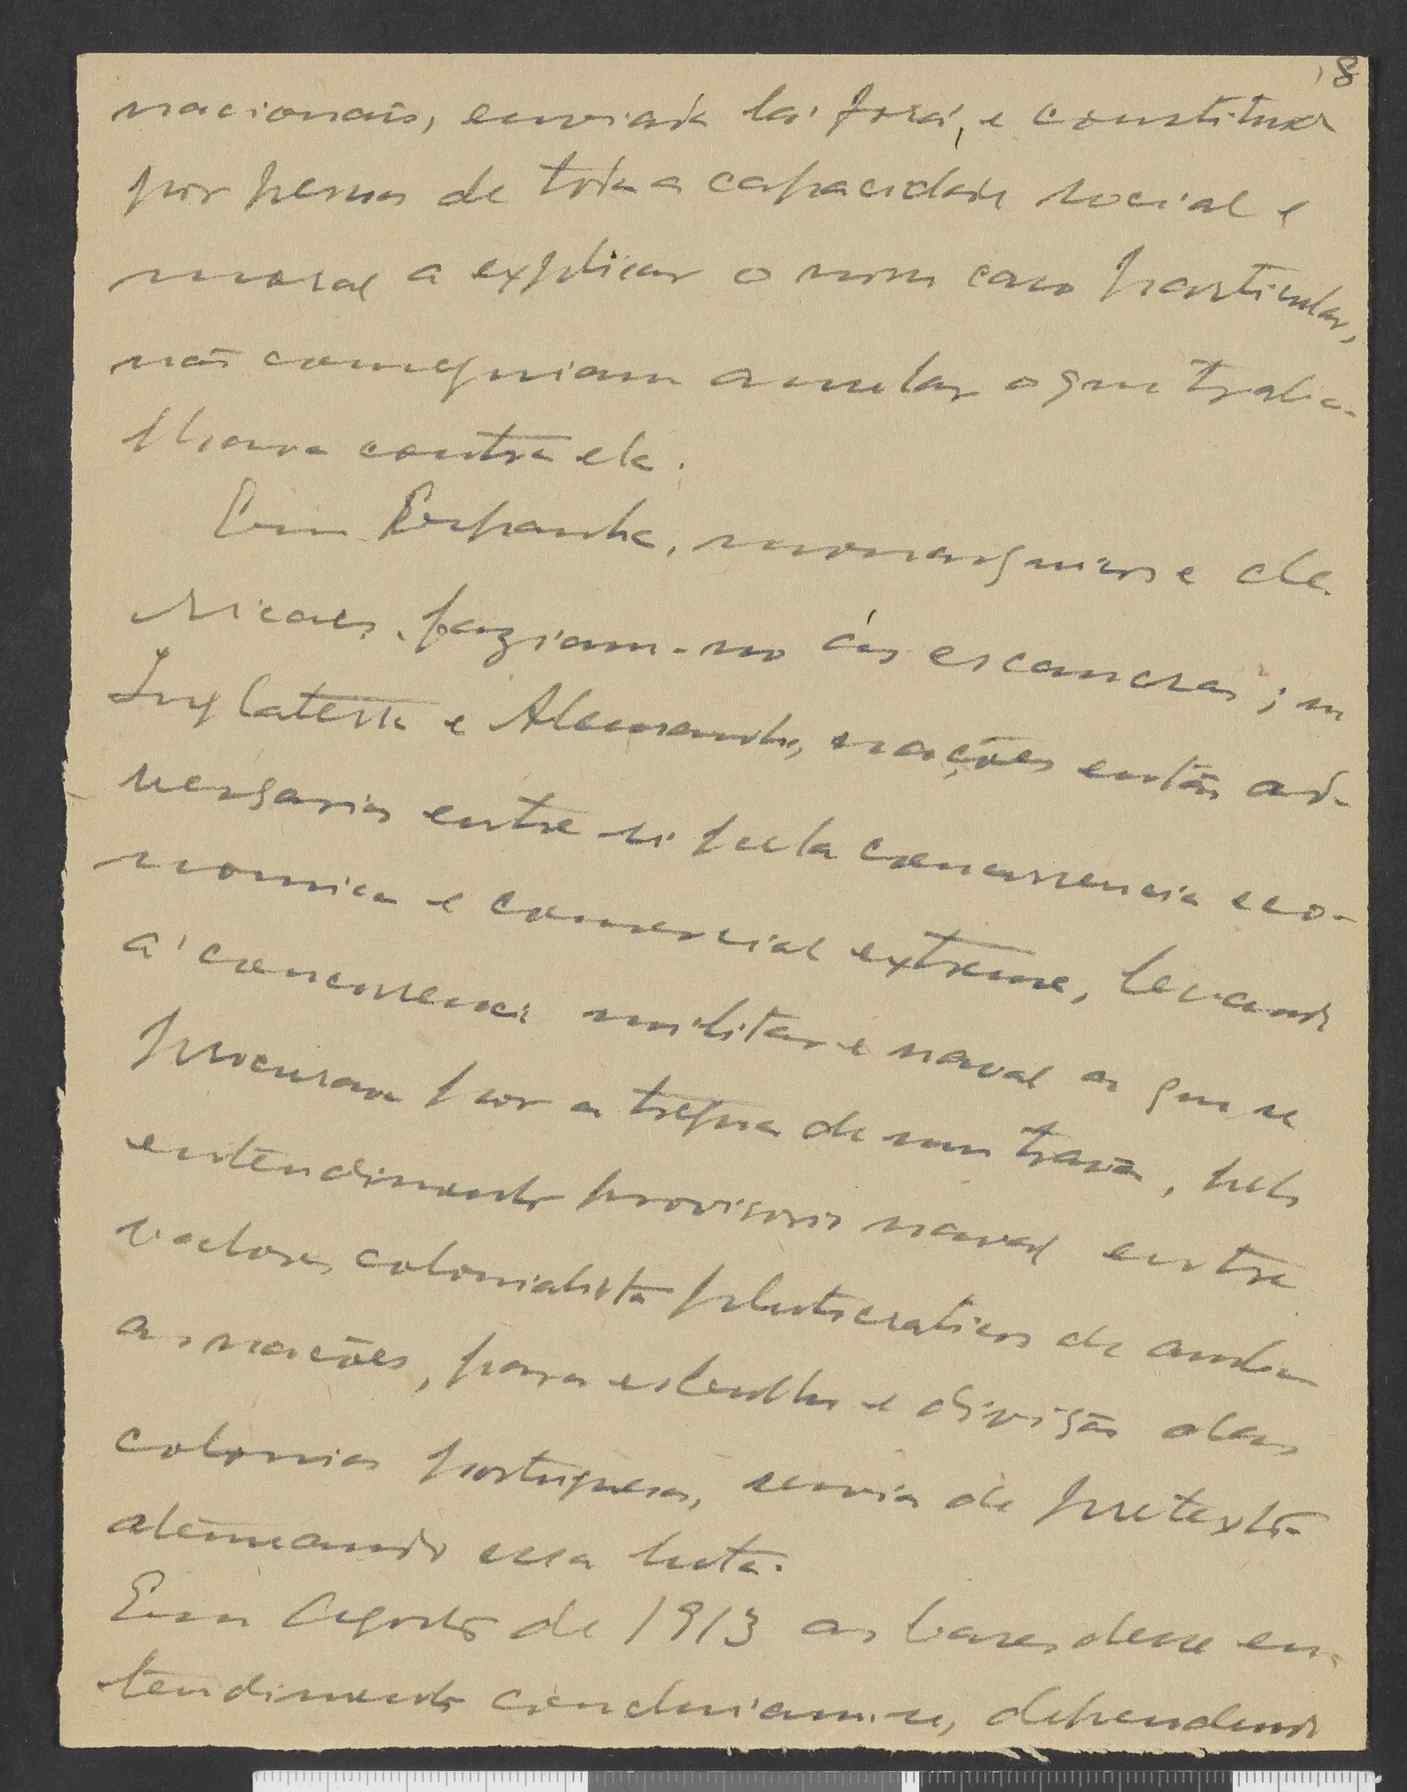 8
nacionais, enviada lá fóra, e constituida
por pessoas de toda a capacidade social e
moral a explicar o nosso caso particular,
não conseguiam anular o que traba-
lhava contra ela.
Em Espanha, monarquicos e cle-
ricaes, faziam-no ás escancaras; em
Inglaterra e Alemanha, nações então ad-
versarias entre si pela concurrencia eco-
nomica e comercial extreme, levando
á concurrencia militar e naval a que se
procurava por a tregua de um travão, pelo
entendimento provisorio naval entre
valores colonialista plutocraticos de ambas
as nações, para esbulho e divisão das
colonias portuguesas, servia de pretexto
atenuando essa luta.
Em Agosto de 1913 as bases desse en-
tendimento concluiam-se, dependendo